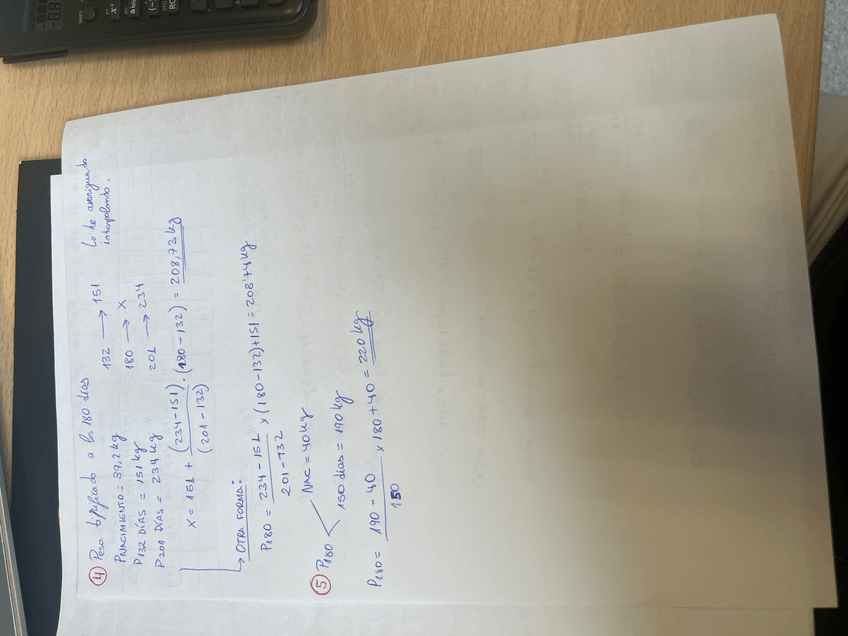 ④ Peso tipificado a los 180 días
PNACIMIENTO = 39,2 kg
P132 DÍAS = 151 kg
P201 DÍAS = 234 kg
132 → 151
180 → X
201 → 234
Lo he averiguado
interpolando.
X = 151 + (234-151)/(201-132) · (180-132) = 208,73 kg
→ OTRA FORMA:
P180 = 234-151/201-132 x (180-132)+151 = 208'74 kg
⑤ P180
NAC = 40 kg
150 días = 190 kg
P180 = 190-40/150 x 180 + 40 = 220 kg